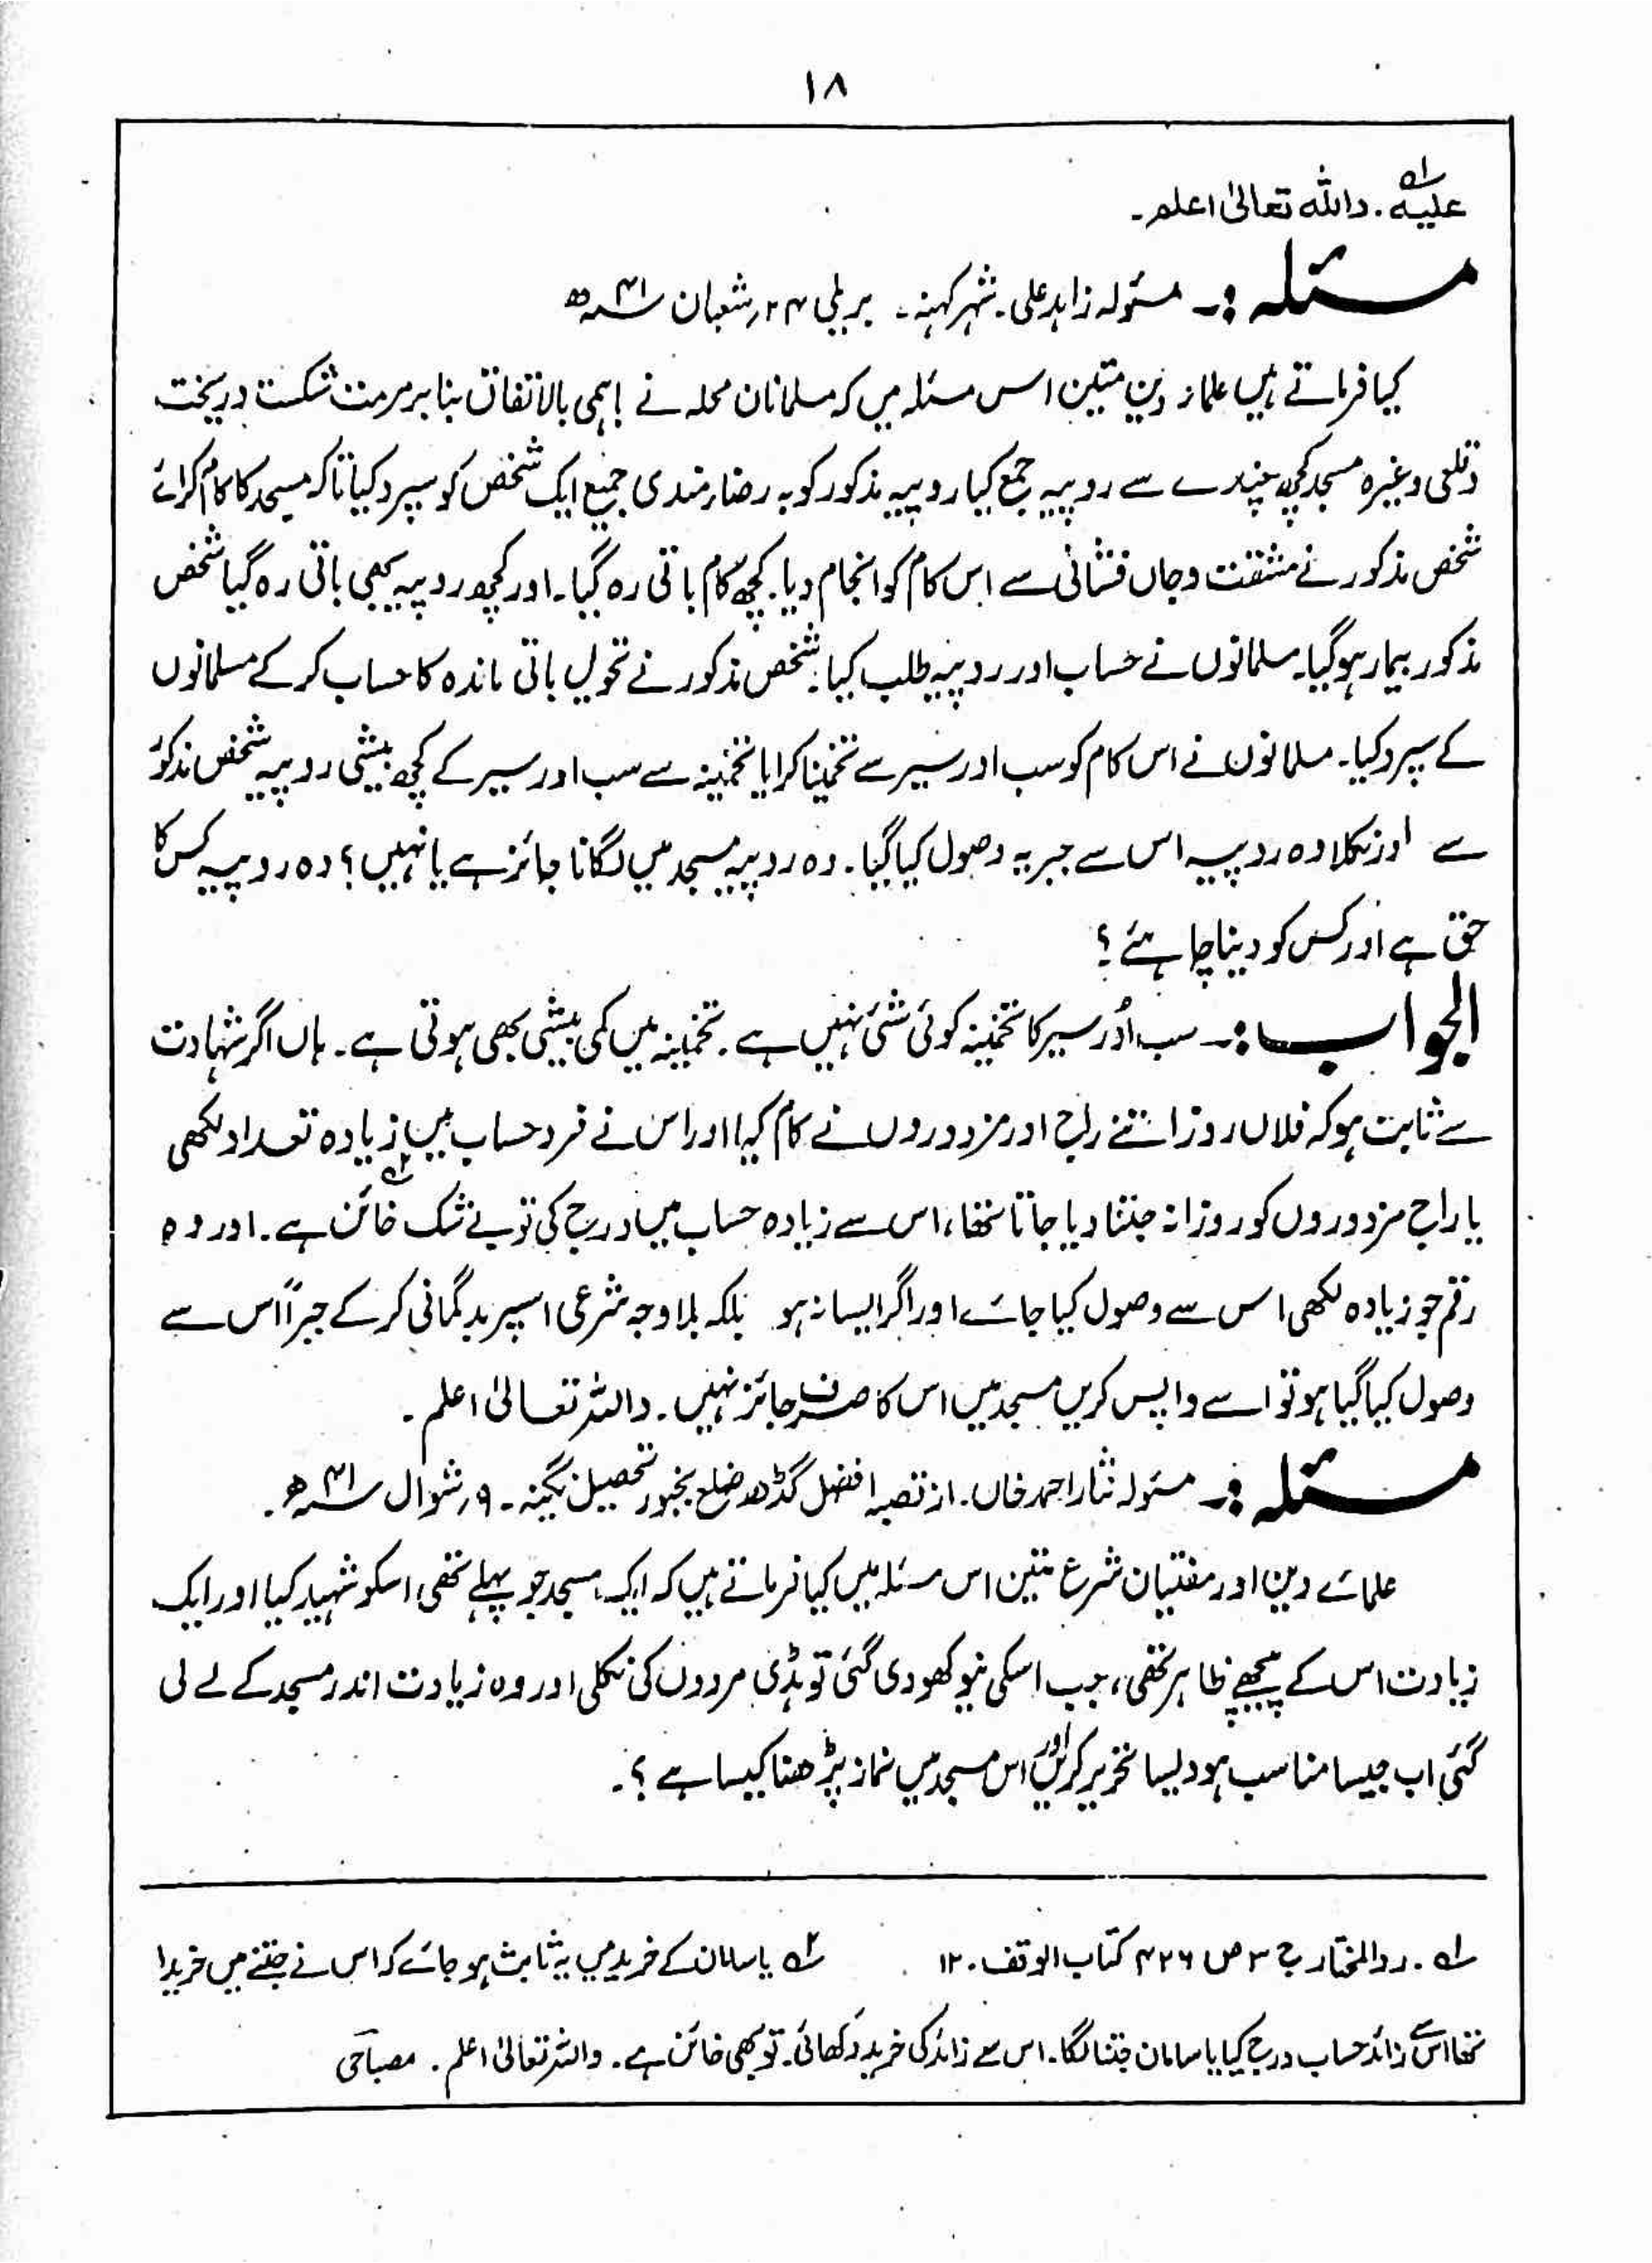 ۱۸
علیہ۔ واللہ تعالیٰ اعلم۔
مسئلہ:۔ مسئولہ زاہد علی۔ شہر کہنہ۔ بریلی ۲۴ رشعبان ۴۱ھ
کیا فرماتے ہیں علماء دین متین اس مسئلہ میں کہ مسلمانان محلہ نے باہمی بالاتفاق بنا بر مرمت شکست و ریخت
و قلعی وغیرہ مسجد کچھ چندے سے روپیہ جمع کیا روپیہ مذکور کو بہ رضا مندی جمیع ایک شخص کو سپرد کیا تاکہ مسجد کا کام کرائے
شخص مذکور نے مشقت و جاں فشانی سے اس کام کو انجام دیا۔ کچھ کام باقی رہ گیا۔ اور کچھ روپیہ بھی باقی رہ گیا شخص
مذکور بیمار ہو گیا۔ مسلمانوں نے حساب اور روپیہ طلب کیا۔ شخص مذکور نے تحویل باقی ماندہ کا حساب کر کے مسلمانوں
کے سپرد کیا۔ مسلمانوں نے اس کام کو سب اورسیر سے تخمینا کرایا تخمینہ سے سب اورسیر کے کچھ بیشی روپیہ شخص مذکور
سے اور نکلا وہ روپیہ اس سے جبریہ وصول کیا گیا۔ وہ روپیہ مسجد میں لگانا جائز ہے یا نہیں؟ وہ روپیہ کس کا
حق ہے اور کس کو دینا چاہئے؟
الجواب:۔ سب اُورسیر کا تخمینہ کوئی شئ نہیں ہے۔ تخمینہ میں کمی بیشی بھی ہوتی ہے۔ ہاں اگر شہادت
سے ثابت ہو کہ فلاں روز اتنے راج اور مزدوروں نے کام کیا اور اس نے فرد حساب میں زیادہ تعداد لکھی
یا راج مزدوروں کو روزانہ جتنا دیا جاتا تھا، اس سے زیادہ حساب میں درج کی تو بے شک خائن ہے۔ اور وہ
رقم جو زیادہ لکھی اس سے وصول کیا جائے اور اگر ایسا نہ ہو بلکہ بلا وجہ شرعی اسپر بدگمانی کر کے جبراً اس سے
وصول کیا گیا ہو تو اسے واپس کریں مسجد میں اس کا صرف جائز نہیں۔ واللہ تعالیٰ اعلم۔
مسئلہ:۔ مسئولہ نثار احمد خاں۔ از قصبہ افضل گڈھ ضلع بجنور تحصیل نگینہ۔ ۹ رشوال ۴۱ھ۔
علمائے دین اور مفتیان شرع متین اس مسئلہ میں کیا فرماتے ہیں کہ ایک مسجد جو پہلے تھی اسکو شہید کیا اور ایک
زیادت اس کے پیچھے ظاہر تھی، جب اسکی نیو کھودی گئی تو ہڈی مردوں کی نکلی اور وہ زیادت اندر مسجد کے لے لی
گئی اب جیسا مناسب ہو ویسا تحریر کریں اور اس مسجد میں نماز پڑھنا کیسا ہے؟۔
۱۔ ردالمختار ج ۳ ص ۴۲۶ کتاب الوقف۔ ۱۲ ۲ یا سامان کے خرید میں یہ ثابت ہو جائے کہ اس نے جتنے میں خریدا
تھا اس سے زائد حساب درج کیا یا سامان جتنا لگا۔ اس سے زائد کی خرید دکھائی۔ تو بھی خائن ہے۔ واللہ تعالیٰ اعلم۔ مصباحی